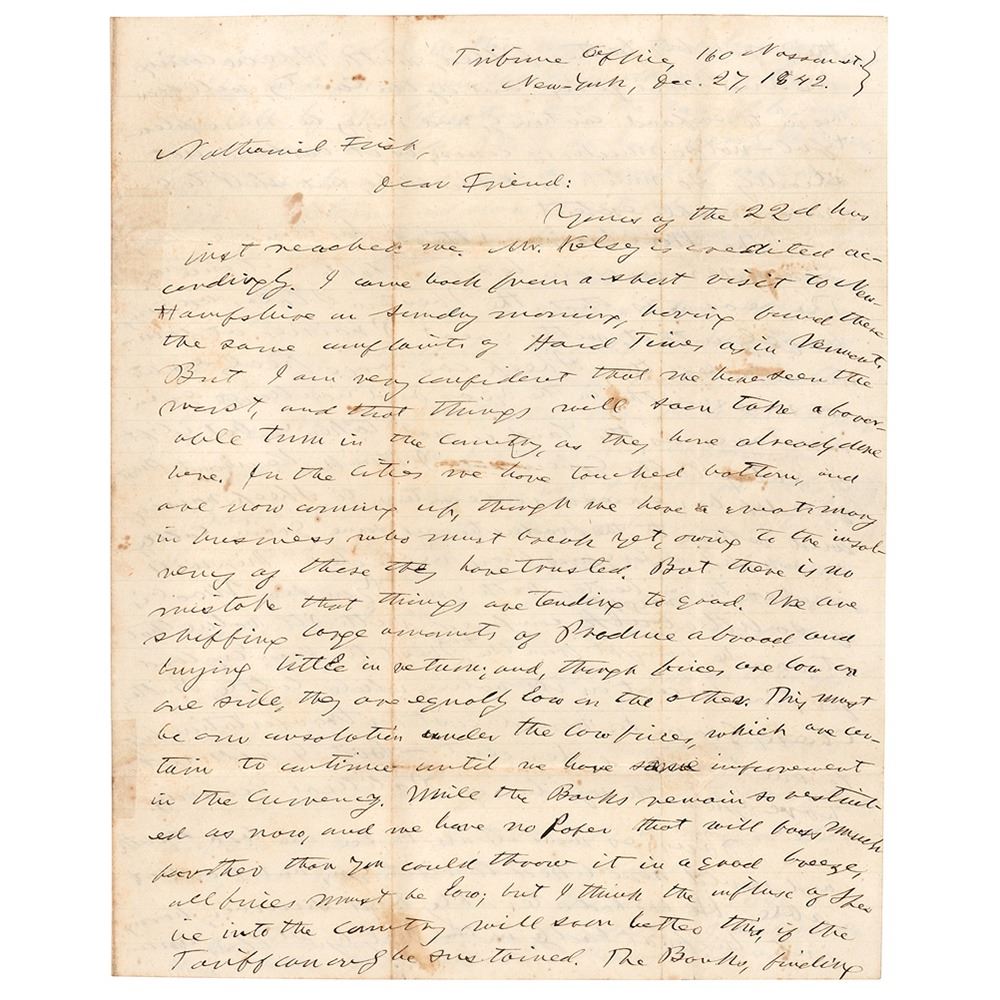 Tribune Office, 160 Nassau st. }
New-York, Dec. 27, 1842. }
Nathaniel Fisk,
Dear Friend:
Yours of the 22d has
just reached me. Mr. Kelsey is credited ac-
cordingly. I came back from a short visit to New-
Hampshire on Sunday morning, having found there
the same complaints of Hard Times as in Vermont.
But I am very confident that we have seen the
worst, and that things will soon take a favor-
able turn in the Country, as they have already done
here. In the Cities we have touched bottom, and
are now coming up, though we have a great many
in business who must break yet, owing to the insol-
vency of those they have trusted. But there is no
mistake that things are tending to good. We are
shipping large amounts of Produce abroad and
buying little in return; and, though prices are low on
one side, they are equally low on the other. This must
be our consolation under the low prices, which are cer-
tain to continue until we have some improvement
in the Currency. While the Banks remain so restrict-
ed as now, and we have no Paper that will pass much
farther than you could throw it in a good breeze,
all prices must be low; but I think the influx of Spe-
cie into the country will soon better this, if the
Tariff can only be sustained. The Banks, finding